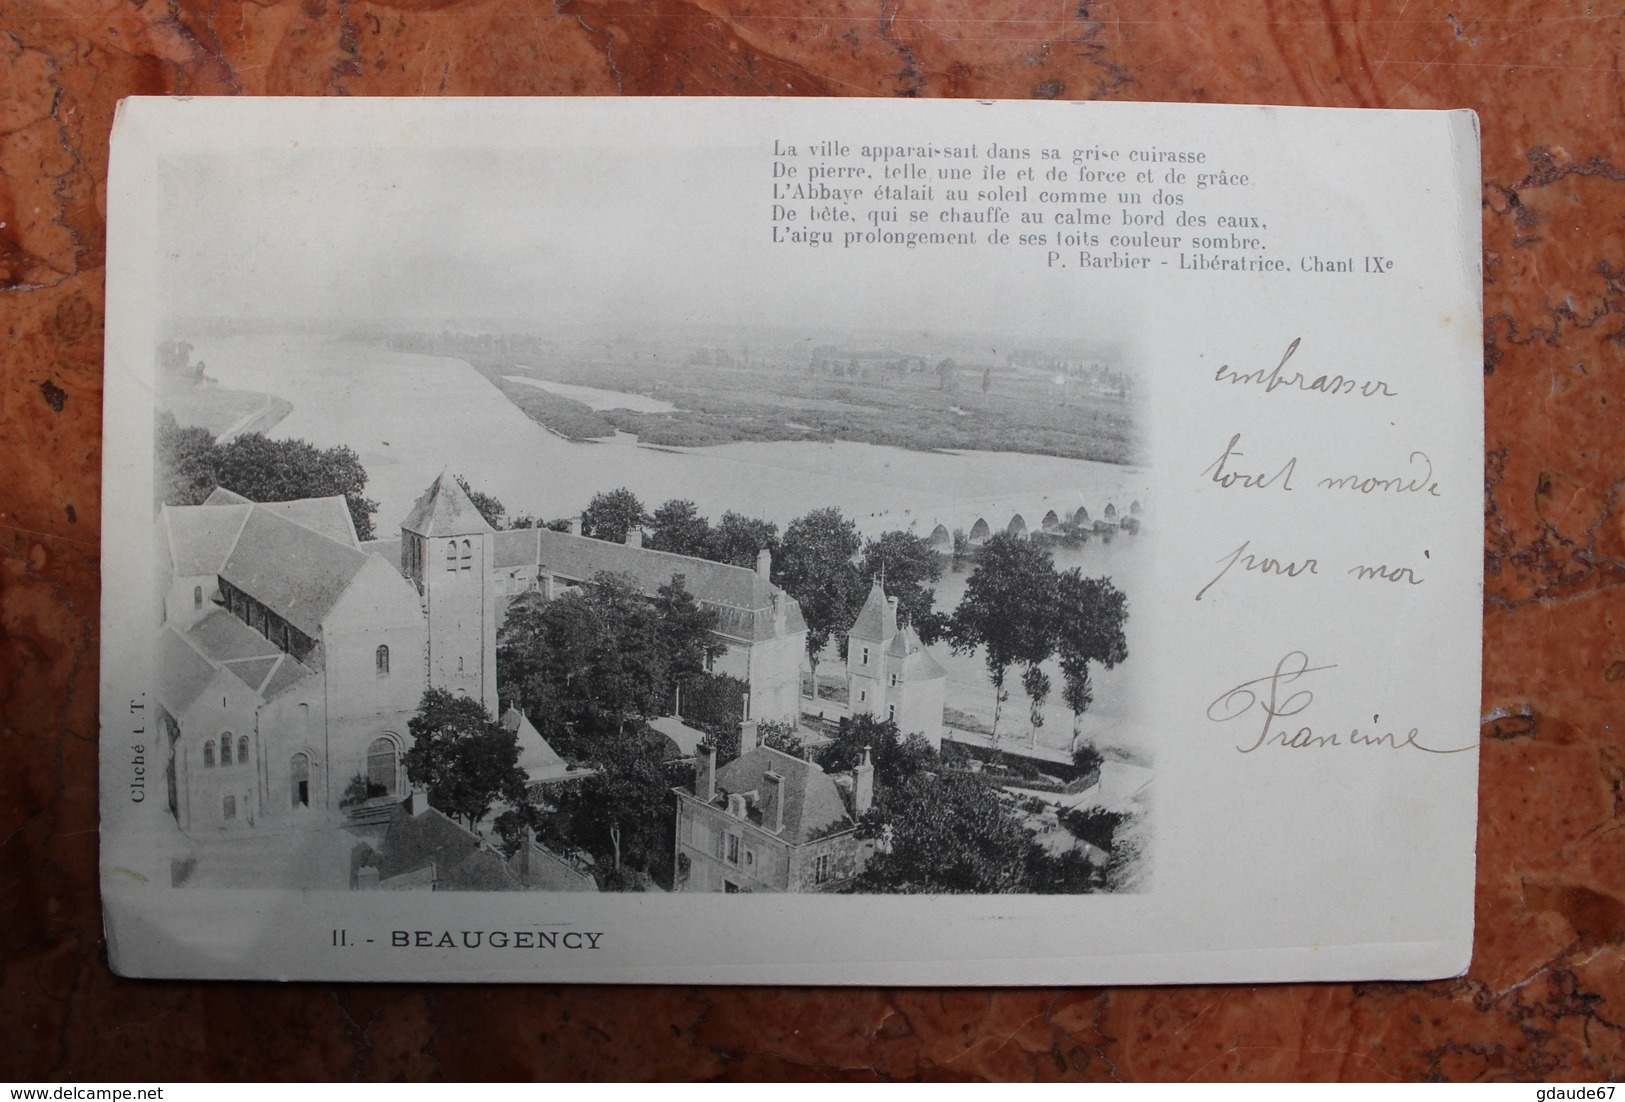 La ville apparaissait dans sa grise cuirasse
De pierre, telle une île et de force et de grâce.
L'Abbaye étalait au soleil comme un dos
De bête, qui se chauffe au calme bord des eaux,
L'aigu prolongement de ses toits couleur sombre.
P. Barbier - Libératrice, Chant IXe
embrasser
tout monde
pour moi
Francine
Cliché L. T.
II. - BEAUGENCY
www.delcampe.net
gdaude67